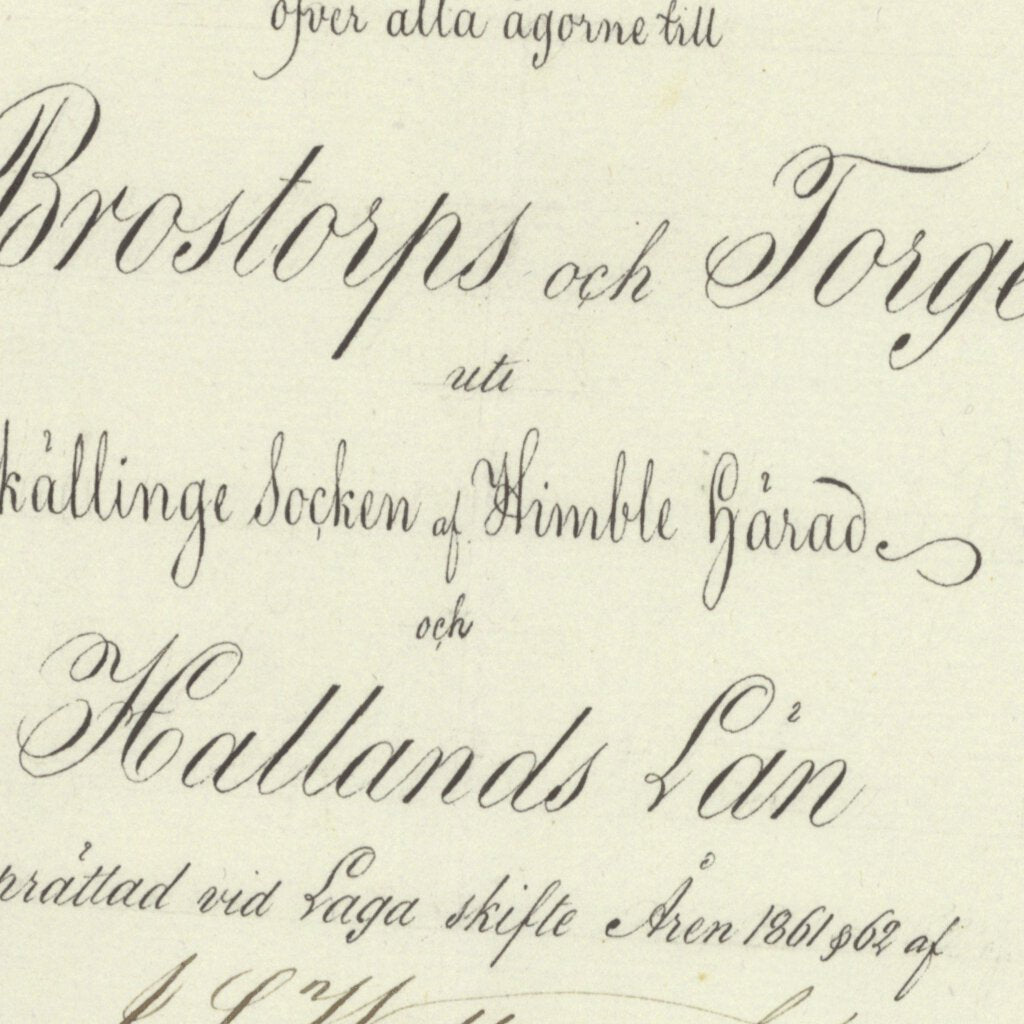 öfver alla ägorne till
Brostorps och Torge
uti
källinge Socken af Himble Härad
och
Hallands Län
prättad vid Laga skifte Åren 1861 & 62 af